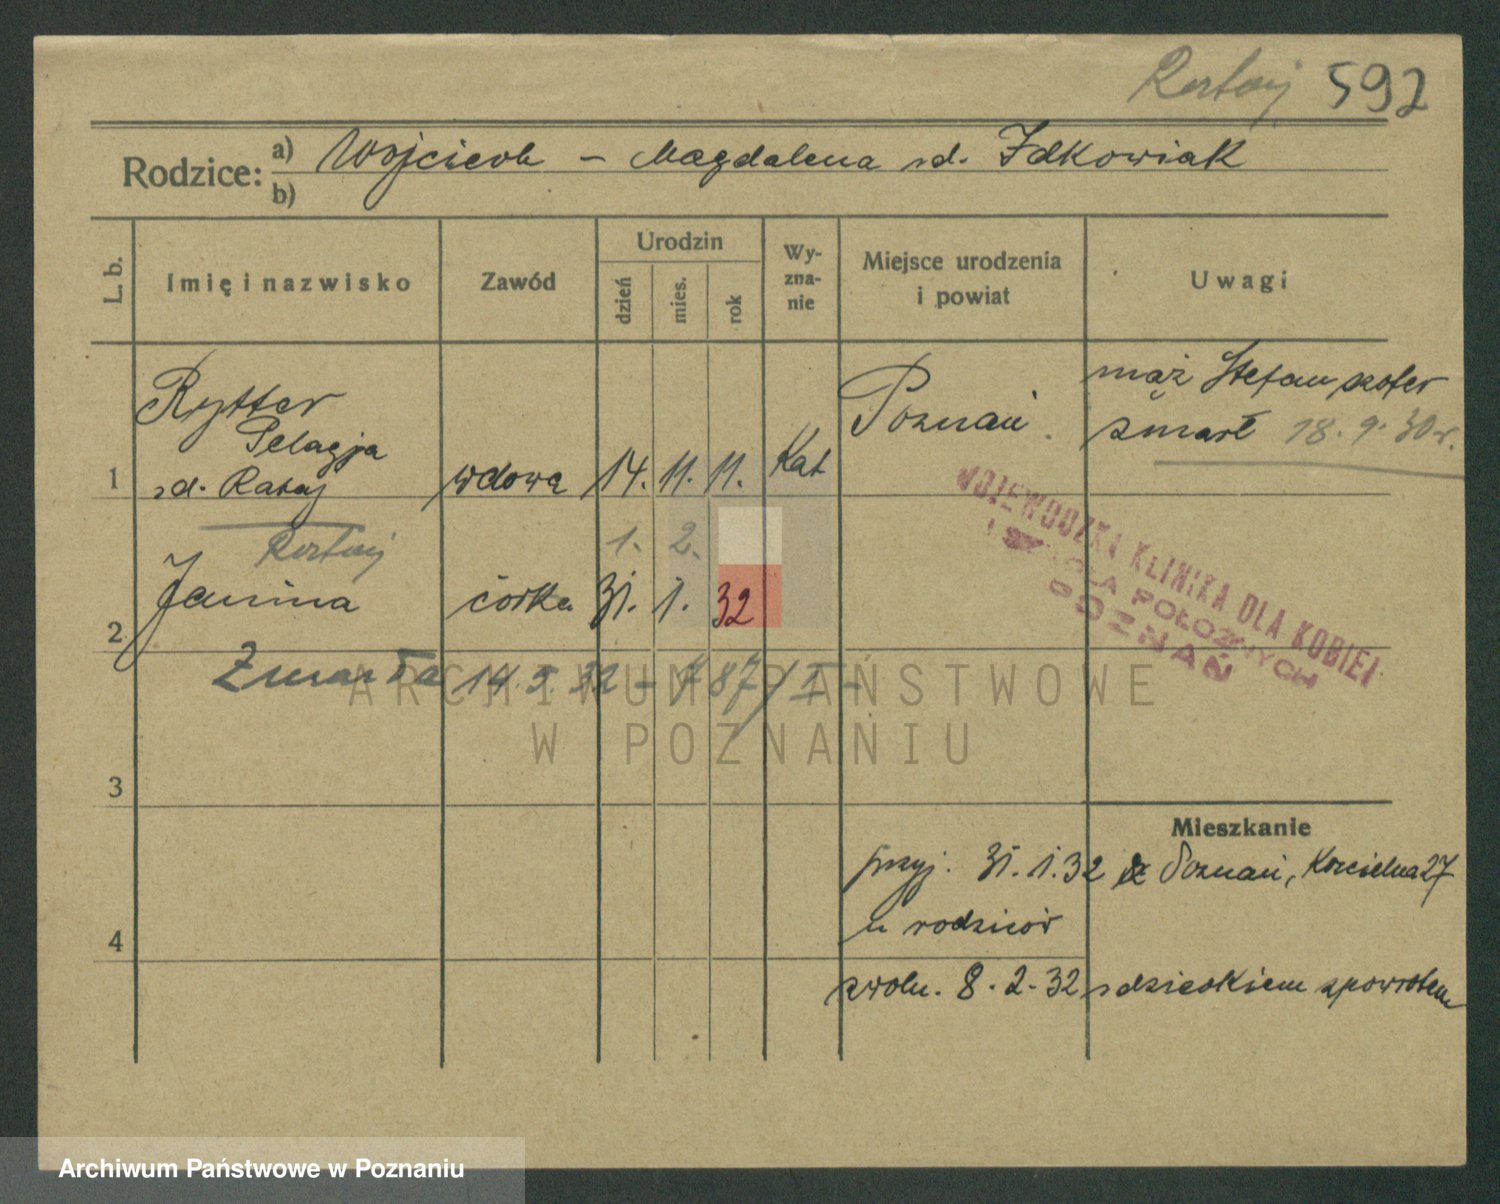 Rataj 592
Rodzice: a) Wojciech – Magdalena zd. Idkowiak
b)
L. b.
Imię i nazwisko
Zawód
Urodzin
dzień
mies.
rok
Wy-
zna-
nie
Miejsce urodzenia
i powiat
Uwagi
1
Rytter
Pelagja
zd. Rataj
wdowa
14. 11. 11.
Kat
Poznań
mąż Stefan szofer
zmarł 18.9.30r.
WOJEWÓDZKA KLINIKA DLA KOBIET
I SZKOŁA POŁOŻNYCH
POZNAŃ
Rataj
1. 2.
2
Janina
córka
31. 1. 32
Zmarła 14 5. 32 – 787/I –
3
Mieszkanie
przyj. 31.1.32 z Poznań, Kościelna 27
4
u rodziców
zwoln. 8.2.32 z dzieckiem zpowrotem
ARCHIWUM PAŃSTWOWE
W POZNANIU
Archiwum Państwowe w Poznaniu